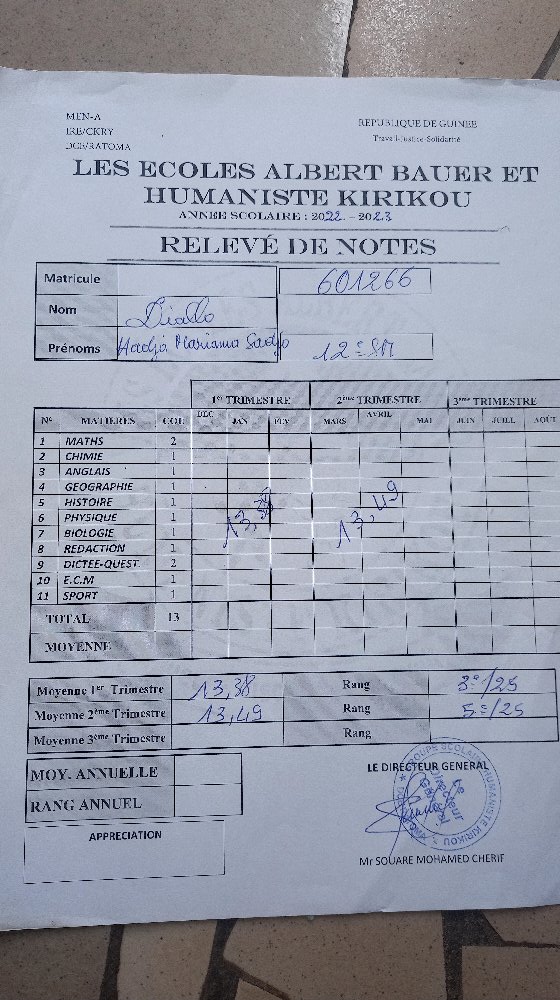 MEN-A
REPUBLIQUE DE GUINEE
IRE/CKRY
Travail-Justice-Solidarité
DCE/RATOMA
LES ECOLES ALBERT BAUER ET
HUMANISTE KIRIKOU
ANNEE SCOLAIRE : 2022 - 2023
RELEVÉ DE NOTES
Matricule 601266
Nom Diallo
Prénoms Hadja Mariama Sadjo 12e SM
1er TRIMESTRE 2ème TRIMESTRE 3ème TRIMESTRE
N° MATIERES COE DEC JAN FEV MARS AVRIL MAI JUIN JUILL AOÛT
1 MATHS 2
2 CHIMIE 1
3 ANGLAIS 1
4 GEOGRAPHIE 1
5 HISTOIRE 1
6 PHYSIQUE 1
7 BIOLOGIE 1
8 REDACTION 1
9 DICTEE-QUEST. 2
10 E.C.M 1
11 SPORT 1
13,38 13,49
TOTAL 13
MOYENNE
Moyenne 1er Trimestre 13,38 Rang 3e/25
Moyenne 2ème Trimestre 13,49 Rang 5e/25
Moyenne 3ème Trimestre Rang
MOY. ANNUELLE
RANG ANNUEL
APPRECIATION
LE DIRECTEUR GENERAL
Le
Directeur
Général
HUMANISTE KIRIKOU
Mr SOUARE MOHAMED CHERIF